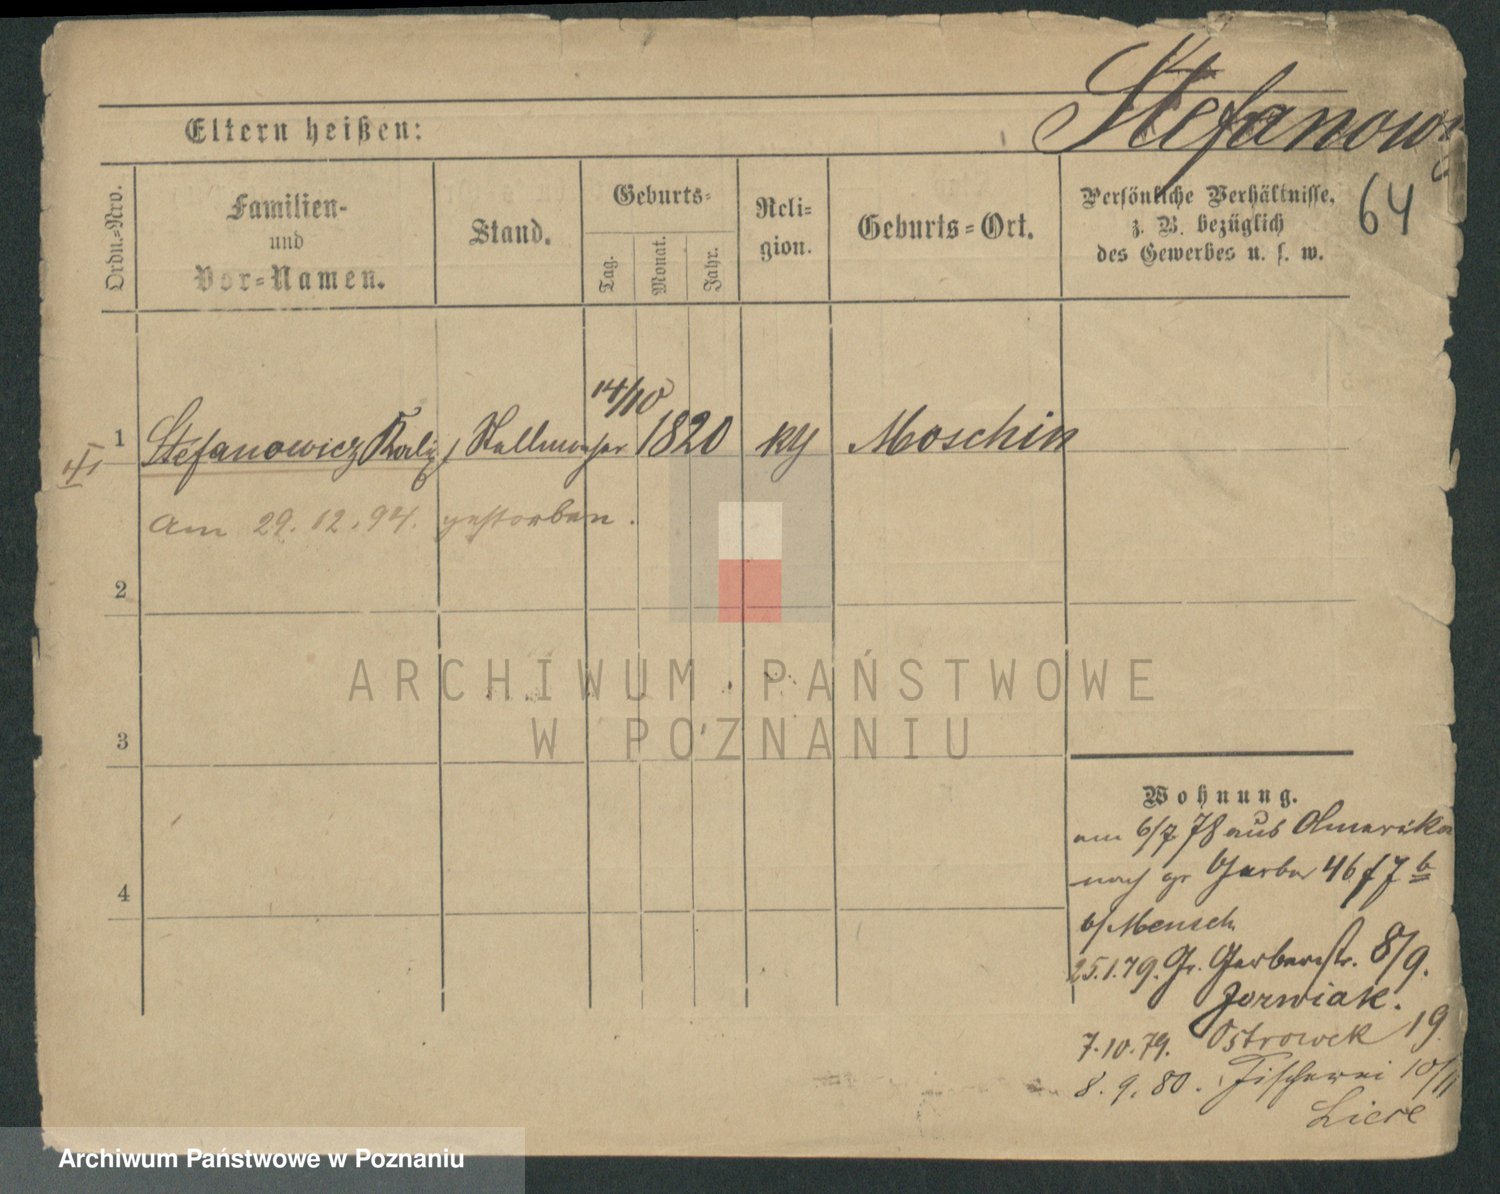 Stefanowicz
64
Eltern heißen:
Ordn.-Nro.
Familien-
und
Vor-Namen.
Stand.
Geburts-
Tag.
Monat.
Jahr.
Reli-
gion.
Geburts-Ort.
Persönliche Verhältnisse,
z. B. bezüglich
des Gewerbes u. s. w.
14/10
1 Stefanowicz 1820 Moschin
am 29.12.94. gestorben.
2
3
4
ARCHIWUM PAŃSTWOWE
W POZNANIU
Wohnung.
am 6/7 78 aus Amerika
nach gr Gerber 46 f 7 b
b/ Mensch
25.1.79. Gr. Gerberstr. 8/9.
Jozwiak.
7.10.79. Ostrowek 19
8.9.80. Fischerei 10/11
Archiwum Państwowe w Poznaniu